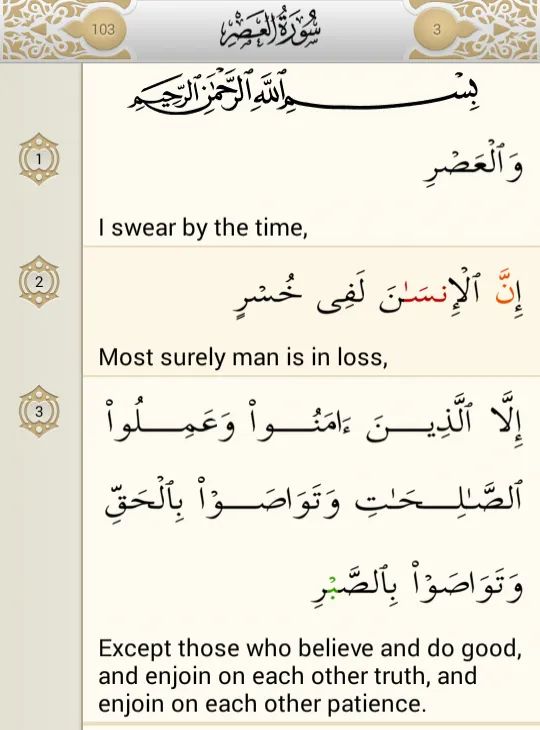 103
سُورَةُ العَصْرِ
3
بِسْمِ ٱللَّهِ ٱلرَّحْمَٰنِ ٱلرَّحِيمِ
1
وَٱلْعَصْرِ
I swear by the time,
2
إِنَّ ٱلْإِنسَـٰنَ لَفِى خُسْرٍ
Most surely man is in loss,
3
إِلَّا ٱلَّذِيـــنَ ءَامَنُـــوا۟ وَعَمِـــلُوا۟
ٱلصَّـٰلِـــحَـٰتِ وَتَوَاصَـــوْا۟ بِٱلْحَقِّ
وَتَوَاصَوْا۟ بِٱلصَّبْرِ
Except those who believe and do good,
and enjoin on each other truth, and
enjoin on each other patience.